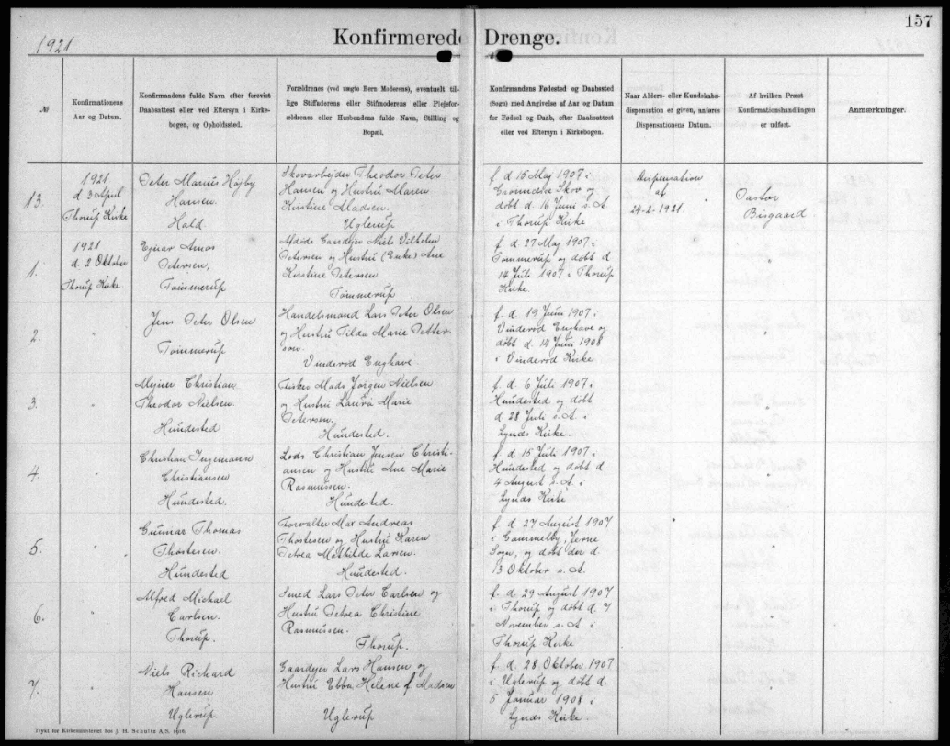 157
1921
Konfirmerede Drenge.
№
Konfirmationens
Aar og Datum.
Konfirmandens fulde Navn efter forevist
Daabsattest eller ved Eftersyn i Kirke-
bogen, og Opholdssted.
Forældrenes (ved uægte Børn Moderens), eventuelt til-
lige Stiffaderens eller Stifmoderens eller Plejefor-
ældrenes eller Husbondens fulde Navn, Stilling og
Bopæl.
Konfirmandens Fødested og Daabssted
(Sogn) med Angivelse af Aar og Datum
for Fødsel og Daab, efter Daabsattest
eller ved Eftersyn i Kirkebogen.
Naar Alders- eller Kundskabs-
dispensation er given, anføres
Dispensationens Datum.
Af hvilken Præst
Konfirmationshandlingen
er udført.
Anmærkninger.
13.
1921
d 3 april
Thorup Kirke
Peter Marius Højby
Hansen
Hald
Skovarbejder Theodor Peter
Hansen og Hustru Maren
Kirstine Madsen.
Uglerup
f d 15 Maj 1907 i
Skov og
døbt d. 16 Juni s. A
i Thorup Kirke
Dispensation
af
1921
Pastor
Bisgaard
1.
1921
d. 2 Oktober
Thorup Kirke
Ejnar Amos
Petersen,
Tømmerup
Gaardejer Niels Vilhelm
Petersen og Hustru (Enke) Ane
Kirstine Petersen
Tømmerup
f d 27 Maj 1907 i
Tømmerup og døbt d.
Juli 1907 i Thorup
Kirke.
2.
"
Jens Peter Olsen
Tømmerup
Handelsmand Lars Peter Olsen
og Hustru Tilda Marie Petter-
sen.
Vinderød Enghave
f. d 19 Juni 1907 i
Vinderød Enghave og
døbt d. 14 Juni 1908
i Vinderød Kirke
"
3.
"
Christian
Theodor Nielsen
Hundested
Fisker Mads Jørgen Nielsen
og Hustru Laura Marie
Petersen,
Hundested.
f d 6 Juli 1907 i
Hundested og døbt
d 28 Juli s. A. i
Lynæs Kirke.
"
4.
"
Christian Ingemann
Christiansen
Hundested.
Lods Christian Jensen Christi-
ansen og Hustru Ane Marie
Rasmussen.
Hundested.
f. d 15 Juli 1907 i
Hundested og døbt d
4 August s. A. i
Lynæs Kirke
"
5.
"
Gunnar Thomas
Thostesen
Hundested
Forvalter Max Andreas
Thostesen og Hustru Karen
Petrea Mathilde Larsen.
Hundested.
f. d 27 August 1907
i Gammelby, Jerne
Sogn, og døbt der d.
13 Oktober s. A
"
6.
"
Alfred Michael
Carlsen
Thorup.
Smed Lars Peter Carlsen og
Hustru Petrea Christine
Rasmussen.
Thorup.
f. d 29 August 1907
i Thorup og døbt d. 7
November s. A. i
Thorup Kirke
"
7.
"
Niels Richard
Hansen
Uglerup
Gaardejer Lars Hansen og
Hustru Ebba Helene f. Madsen
Uglerup
f d. 28 Oktober 1907
i Uglerup og døbt d.
5 Januar 1908 i
Lynæs Kirke.
"
Trykt for Kirkeministeriet hos J. H. Schultz A/S. 1916